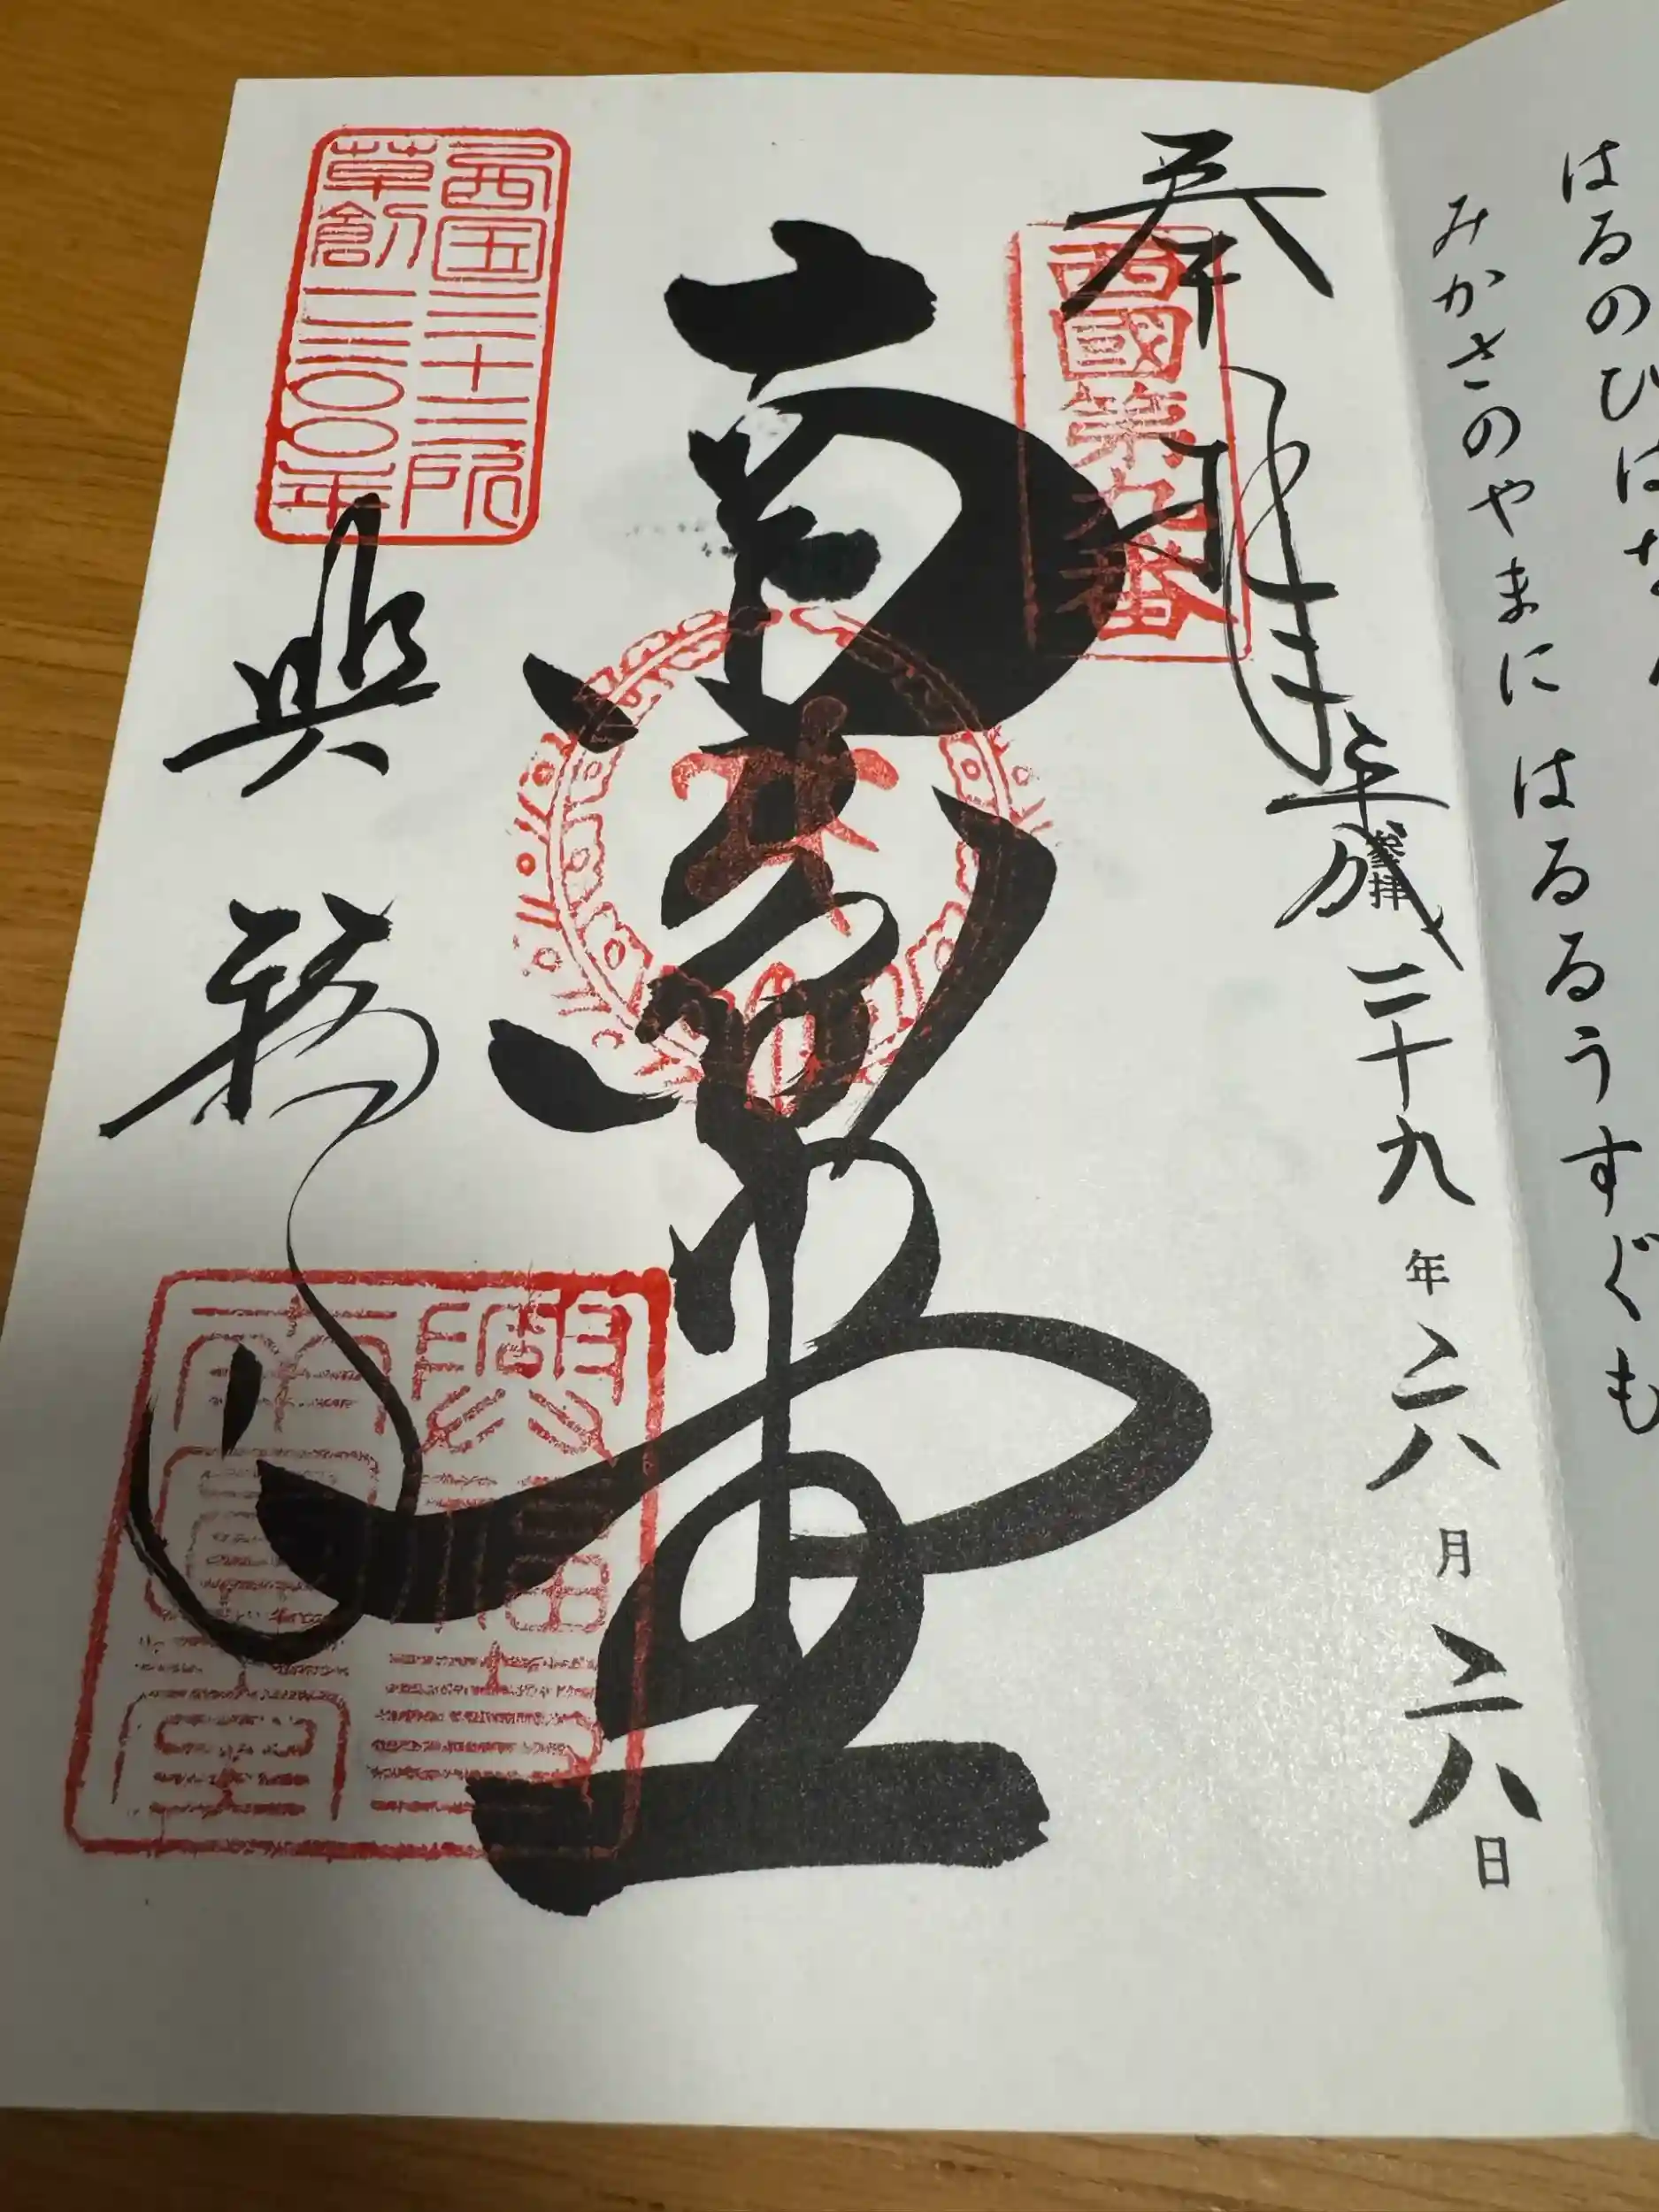 はるのひは
みかさのやまに はるるうすぐも
奉拝
西國第九番
平成二十九年六月六日
参拝
南円堂
西国三十三所
草創一三〇〇年
興福寺